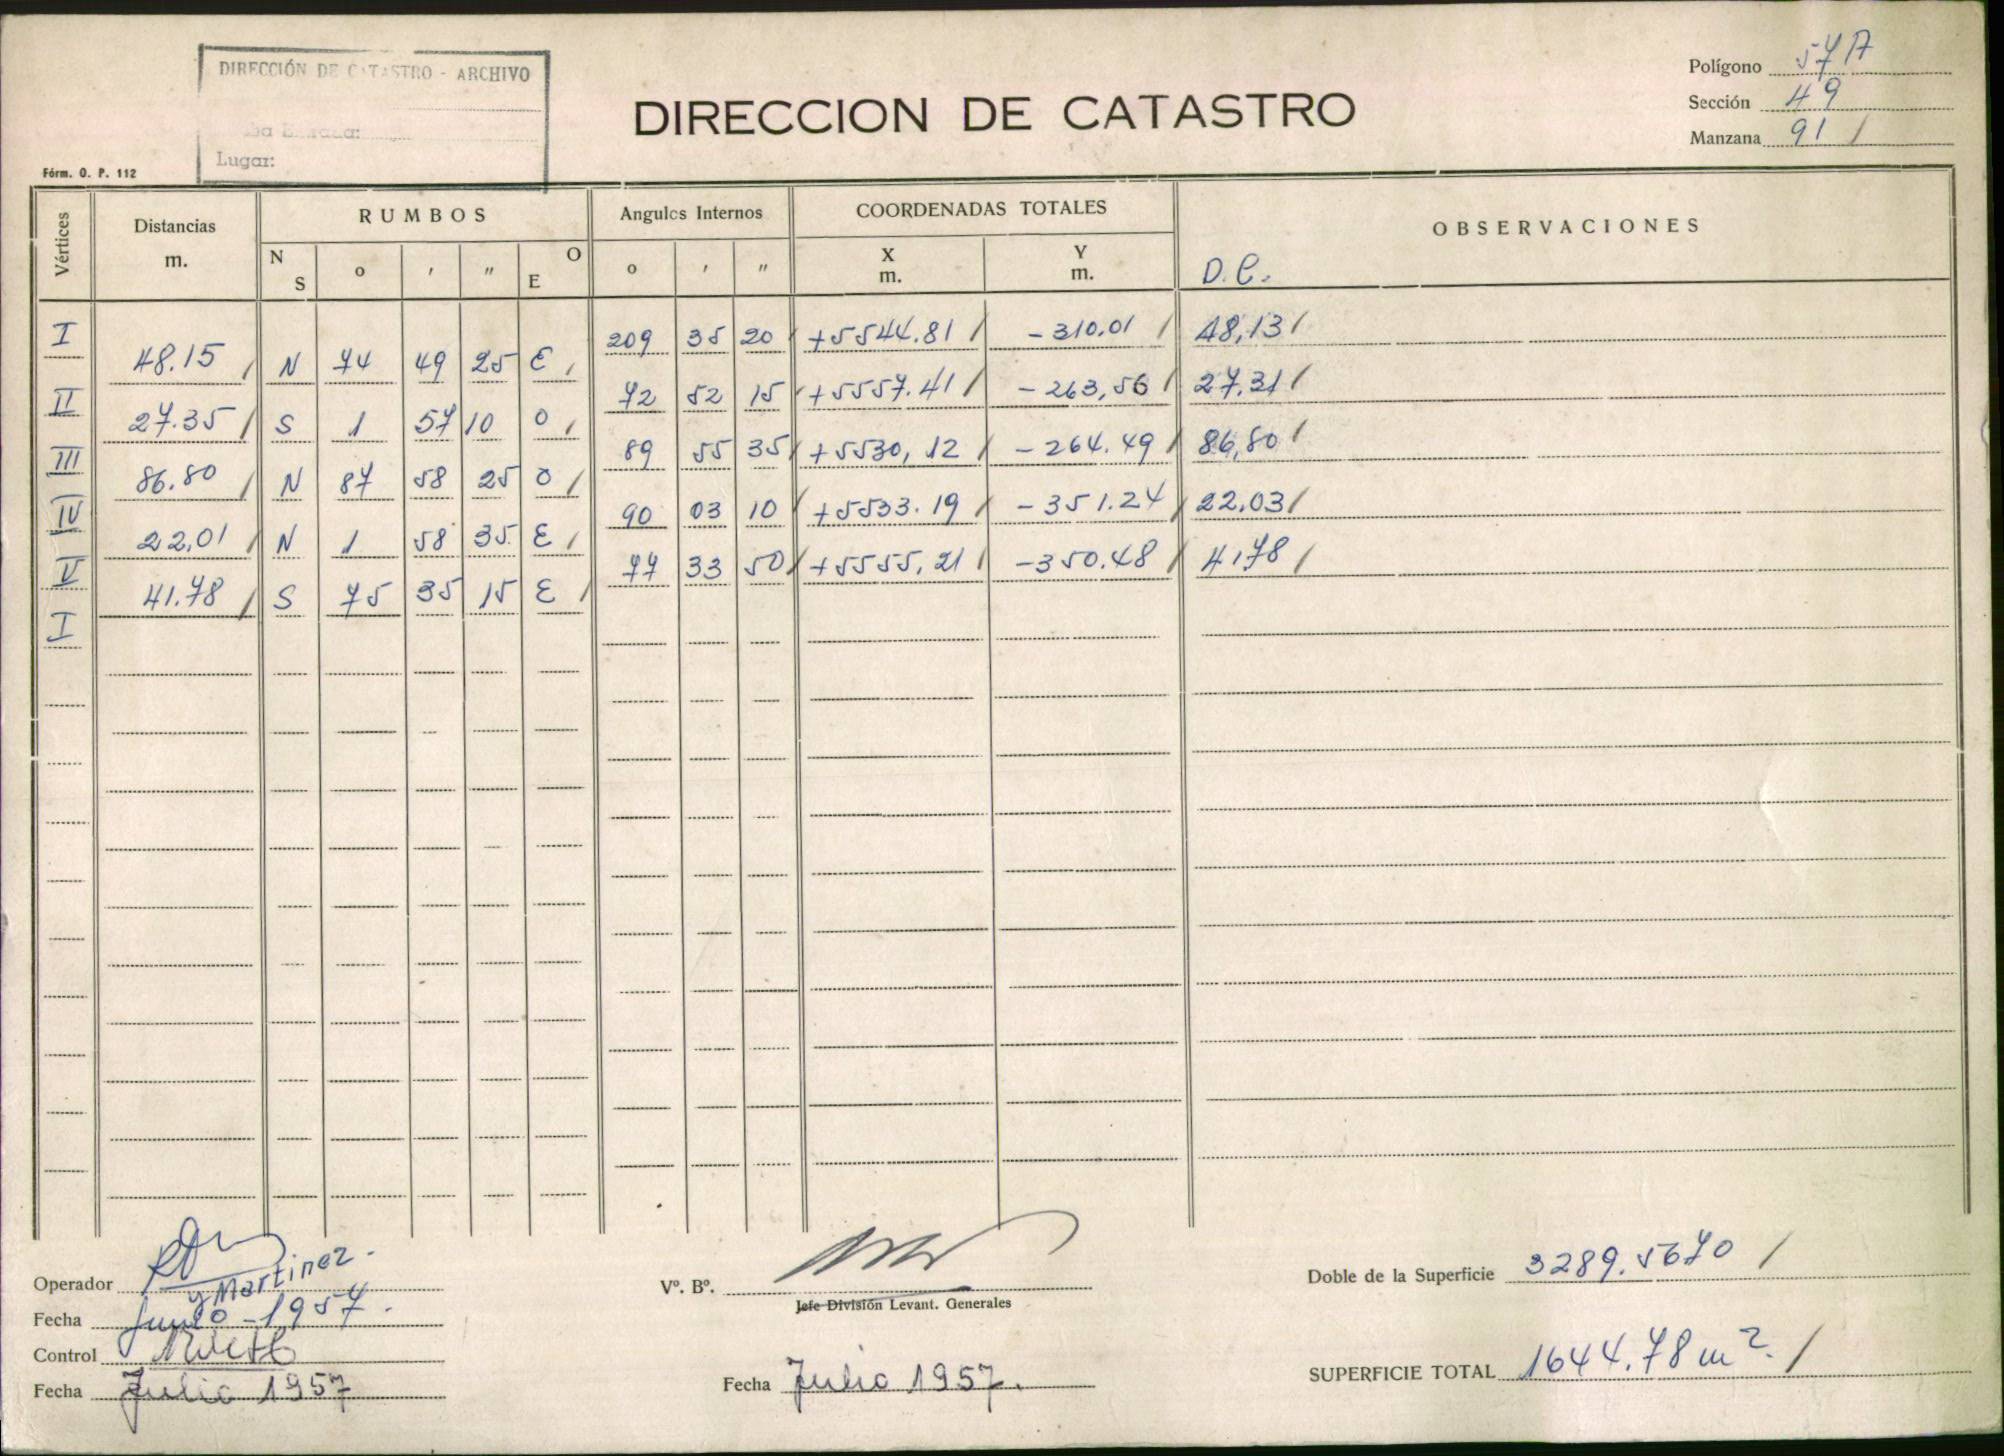 DIRECCIÓN DE CATASTRO - ARCHIVO
Lugar:
DIRECCION DE CATASTRO
Polígono 57A
Sección 49
Manzana 91 /
Fórm. O. P. 112
Vértices
Distancias m.
RUMBOS
N S o ' " O E
Angulos Internos
o ' "
COORDENADAS TOTALES
X m. Y m.
OBSERVACIONES
D.C.
I 209 35 20 / +5544.81 / -310.01 / 48,13 /
48.15 / N 74 49 25 E /
II 72 52 15 / +5557.41 / -263,56 / 27,31 /
27.35 / S 1 57 10 O /
III 89 55 35 / +5530,12 / -264.49 / 86,80 /
86.80 / N 87 58 25 O /
IV 90 03 10 / +5533.19 / -351.24 / 22,03 /
22,01 / N 1 58 35 E /
V 77 33 50 / +5555,21 / -350.48 / 41,78 /
41.78 / S 75 35 15 E /
I
Operador y Martinez.
Fecha Junio - 1957.
Control
Fecha Julio 1957
Vº. Bº.
Jefe División Levant. Generales
Fecha Julio 1957.
Doble de la Superficie 3289.5670 /
SUPERFICIE TOTAL 1644.78 m2. /